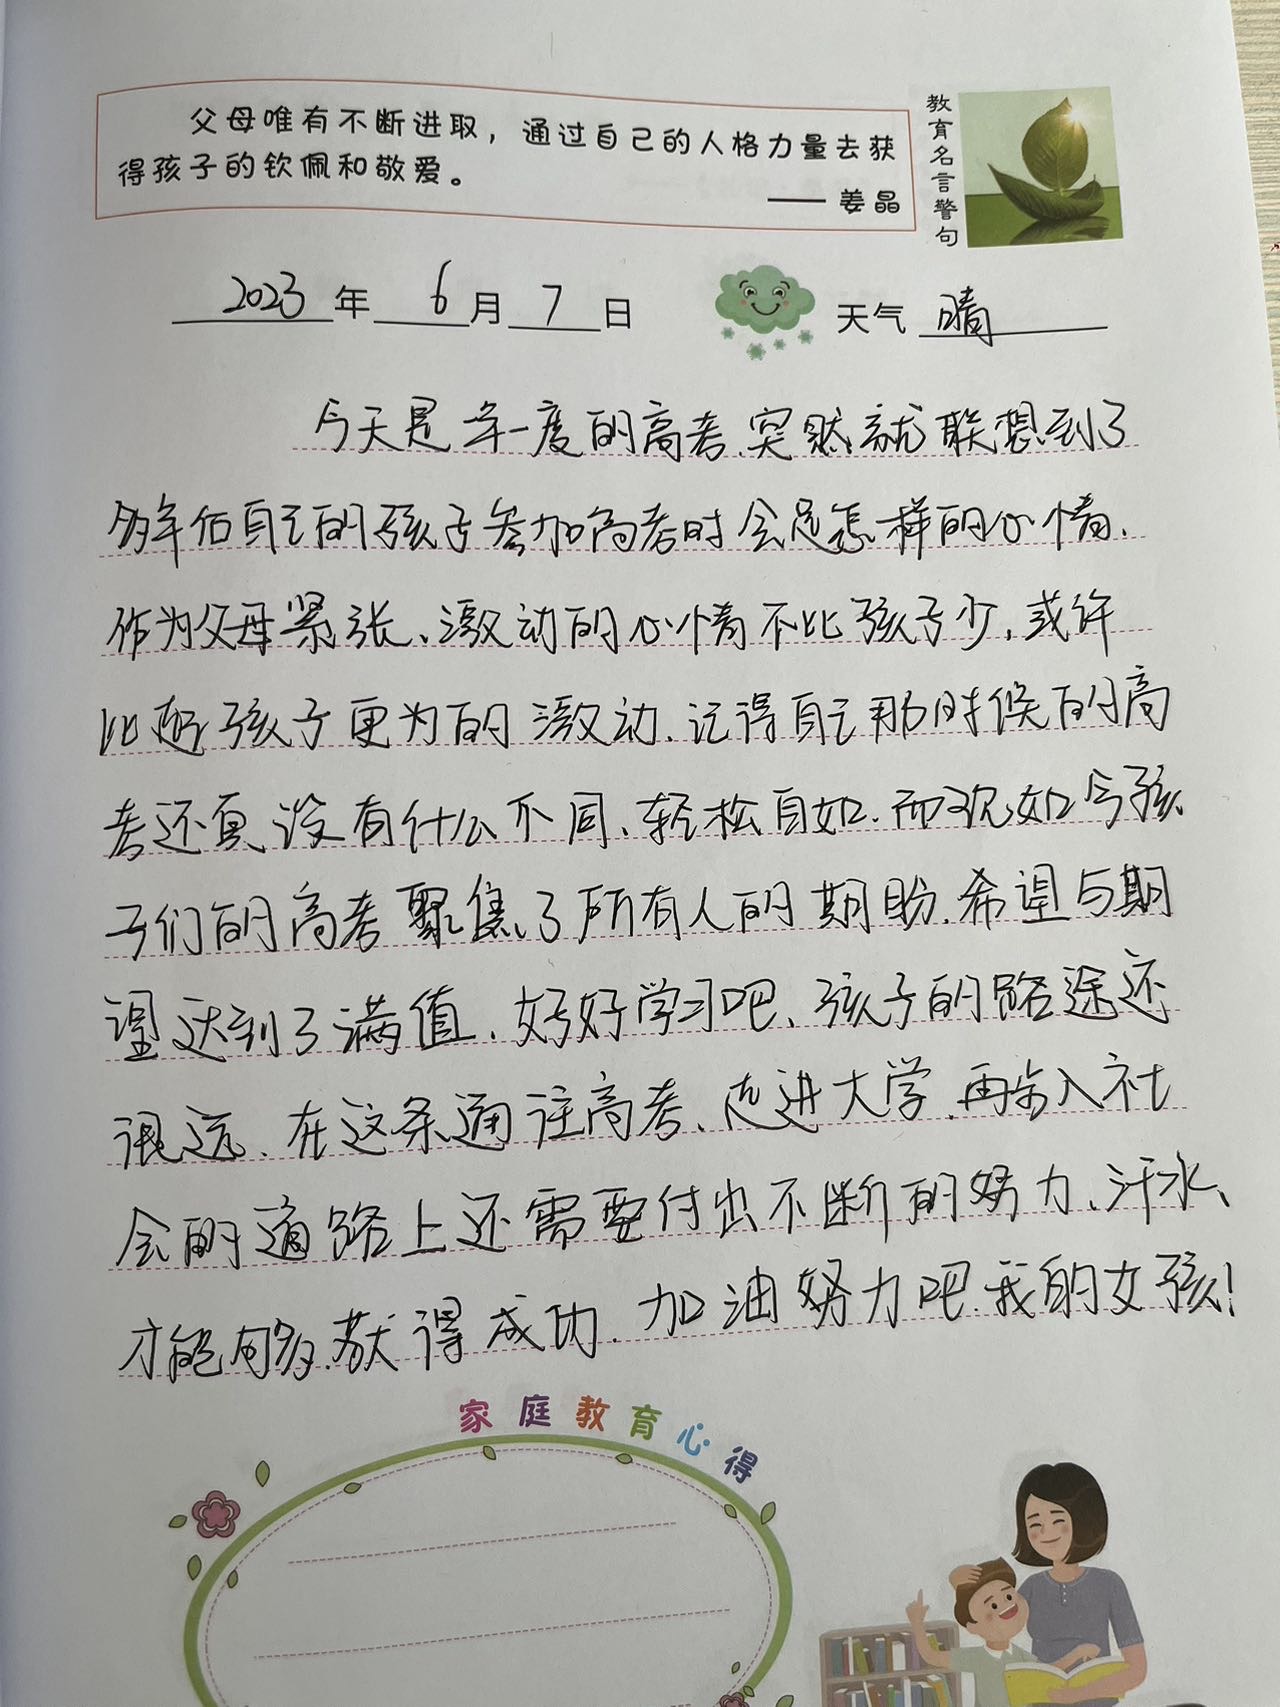 父母唯有不断进取，通过自己的人格力量去获
得孩子的钦佩和敬爱。
—— 姜晶
教育名言警句
2023年 6月7日
天气 晴
今天是一年一度的高考、突然就联想到了
多年后自己的孩子参加高考时会是怎样的心情、
作为父母紧张、激动的心情不比孩子少，或许
比起孩子更为的激动、记得自己那时候的高
考还真没有什么不同、轻松自如、而现如今孩
子们的高考聚焦了所有人的期盼、希望与期
望达到了满值、好好学习吧、孩子的路途还
很远、在这条通往高考、走进大学、再步入社
会的道路上还需要付出不断的努力、汗水、
才能够获得成功、加油努力吧、我的女孩！
家庭教育心得